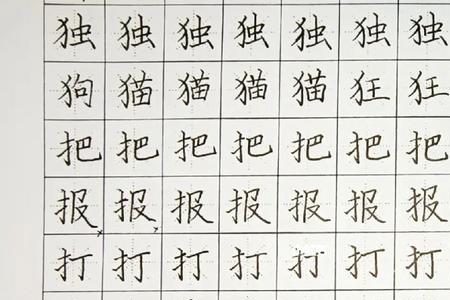 独独独独独独独
狗猫猫猫猫狂狂
把把把把把把把
报报报报报报报
打打打打打打打